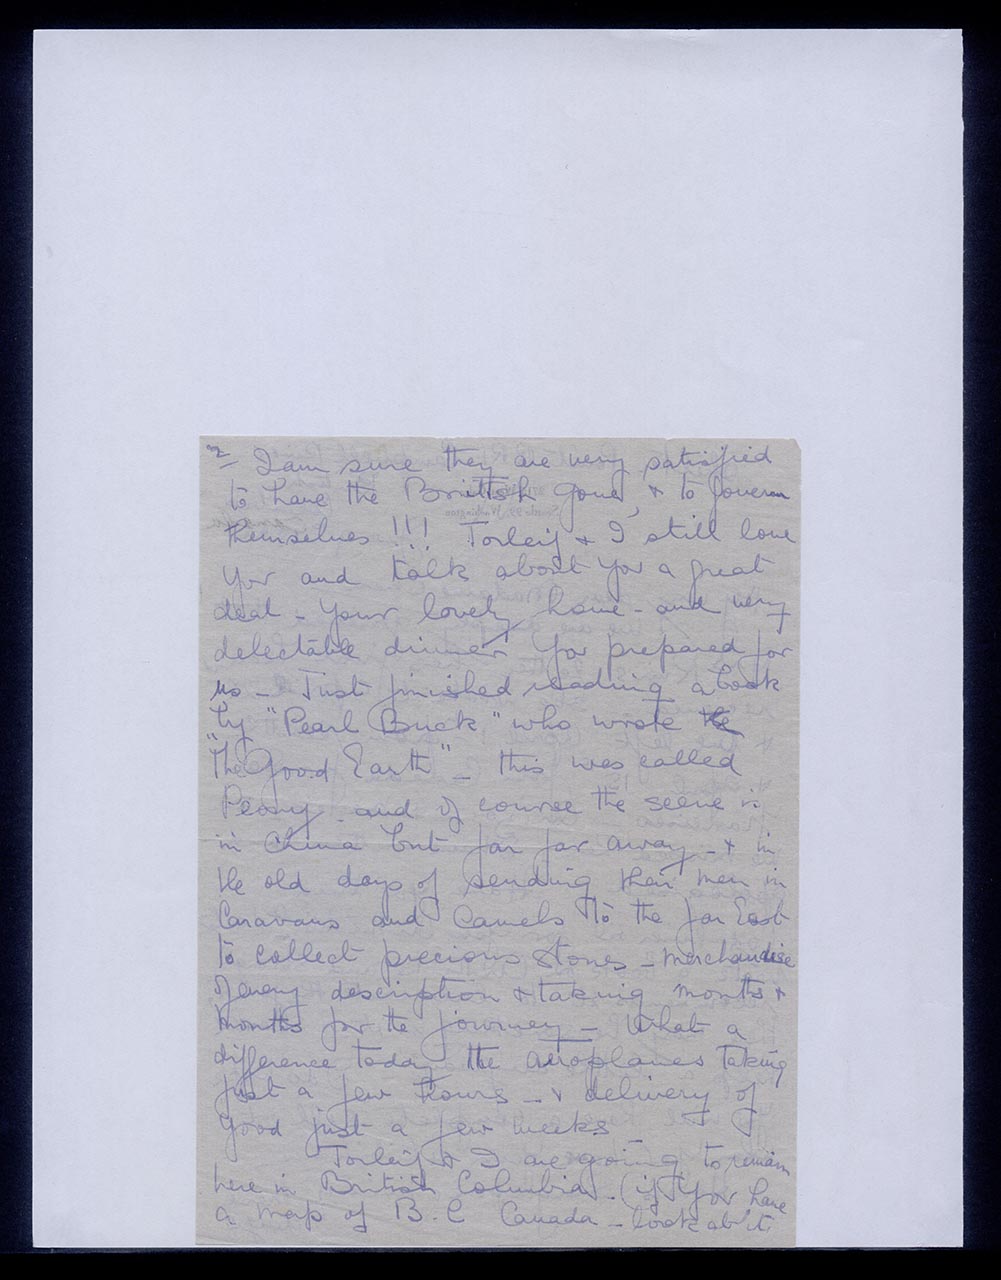 2- I am sure they are very satisfied
to have the Brittish gone, & to govern
themselves !!! Torleif & I still love
You and talk about You a great
deal - Your lovely home - and very
delectable dinner You prepared for
us - Just finished reading a book
by "Pearl Buck" who wrote the
"The Good Earth" - this was called
Peony - and of course the scene is
in China but far far away - & in
the old days of sending their men in
Caravans and Camels to the far East
to collect precious stones - merchandise
of every description & taking months &
months for the journey - What a
difference today the aeroplanes taking
just a few hours - & delivery of
Good just a few weeks -
Torleif & I are going to remain
here in British Columbia. (if You have
a map of B.C Canada - look at it
Seattle 99, Washington